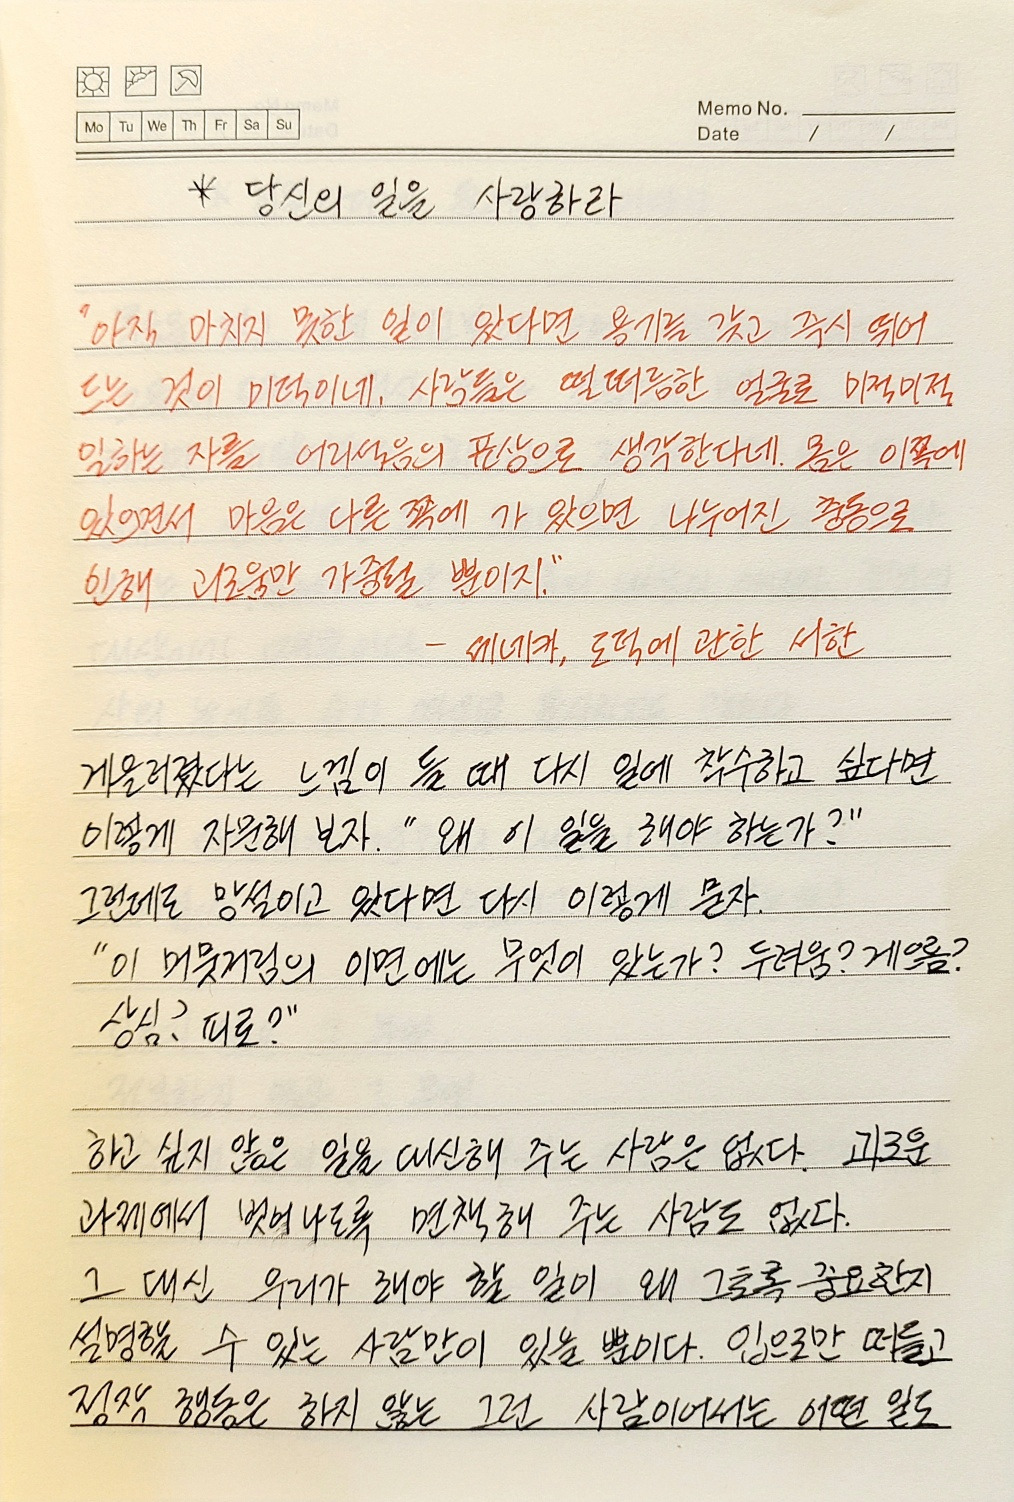 Mo Tu We Th Fr Sa Su
Memo No.
Date / /
* 당신의 일을 사랑하라
"아직 마치지 못한 일이 있다면 용기를 갖고 즉시 뛰어
드는 것이 미덕이네. 사람들은 떨떠름한 얼굴로 미적미적
일하는 자를 어리석음의 표상으로 생각한다네. 몸은 이쪽에
있으면서 마음은 다른 쪽에 가 있으면 나누어진 충동으로
인해 괴로움만 가중될 뿐이지."
- 세네카, 도덕에 관한 서한
게을러졌다는 느낌이 들 때 다시 일에 착수하고 싶다면
이렇게 자문해 보자. "왜 이 일을 해야 하는가?"
그런데도 망설이고 있다면 다시 이렇게 묻자.
"이 머뭇거림의 이면에는 무엇이 있는가? 두려움? 게으름?
상심? 피로?"
하고 싶지 않은 일을 대신해 주는 사람은 없다. 괴로운
과제에서 벗어나도록 면책해 주는 사람도 없다.
그 대신 우리가 해야 할 일이 왜 그토록 중요한지
설명할 수 있는 사람만이 있을 뿐이다. 입으로만 떠들고
정작 행동은 하지 않는 그런 사람이어서는 어떤 일도